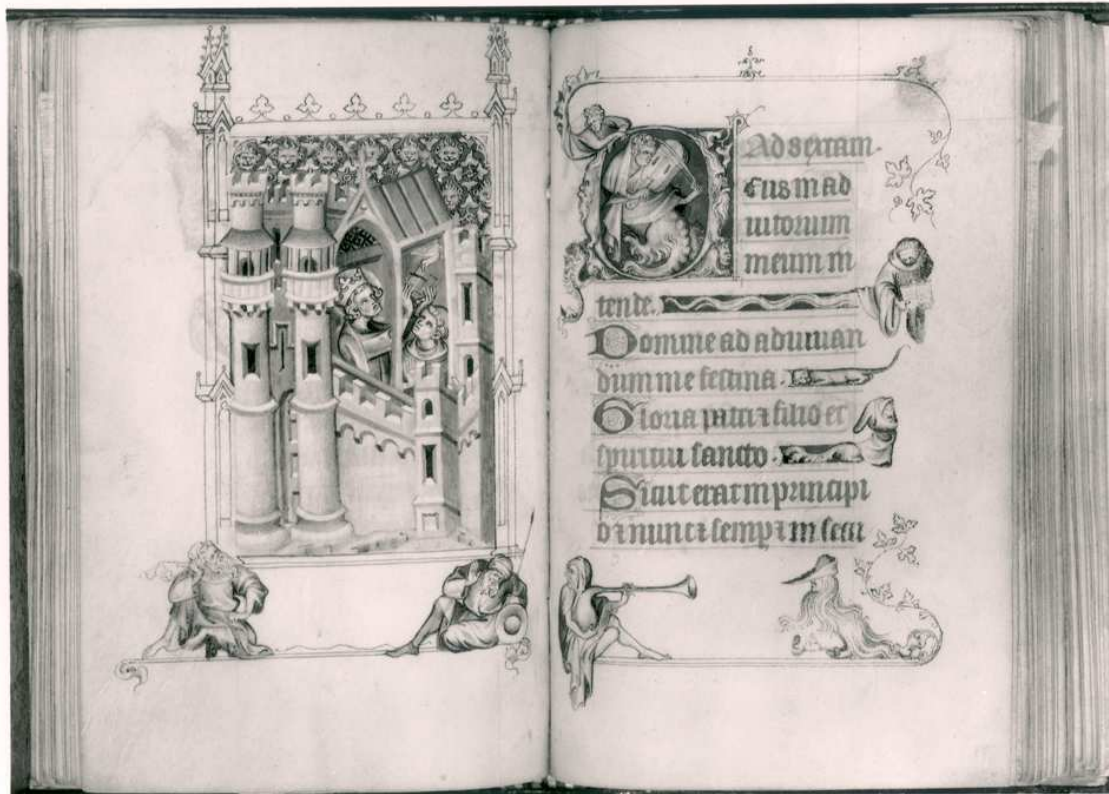 Ad sextam.
Deus in ad
iutorium
meum in
tende.
Domine ad adiuuan
dum me festina.
Gloria patri ⁊ filio et
spiritui sancto.
Sicut erat in principi
o ⁊ nunc ⁊ semp ⁊ in secu